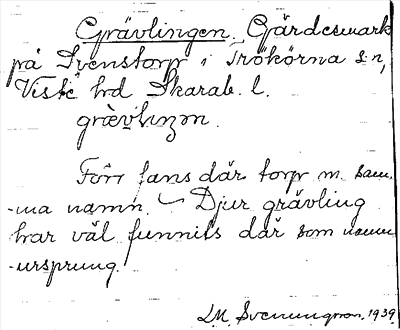 Grävlingen. Gärdesmark
på Svenstorp i Trökörna s:n,
Viste hd Skarab. l.
grèvliŋən.
Förr fans där torp m. sam-
-ma namn. – Djur grävling
har väl funnits där som namn-
-ursprung.
LM. Svenungson. 1939.